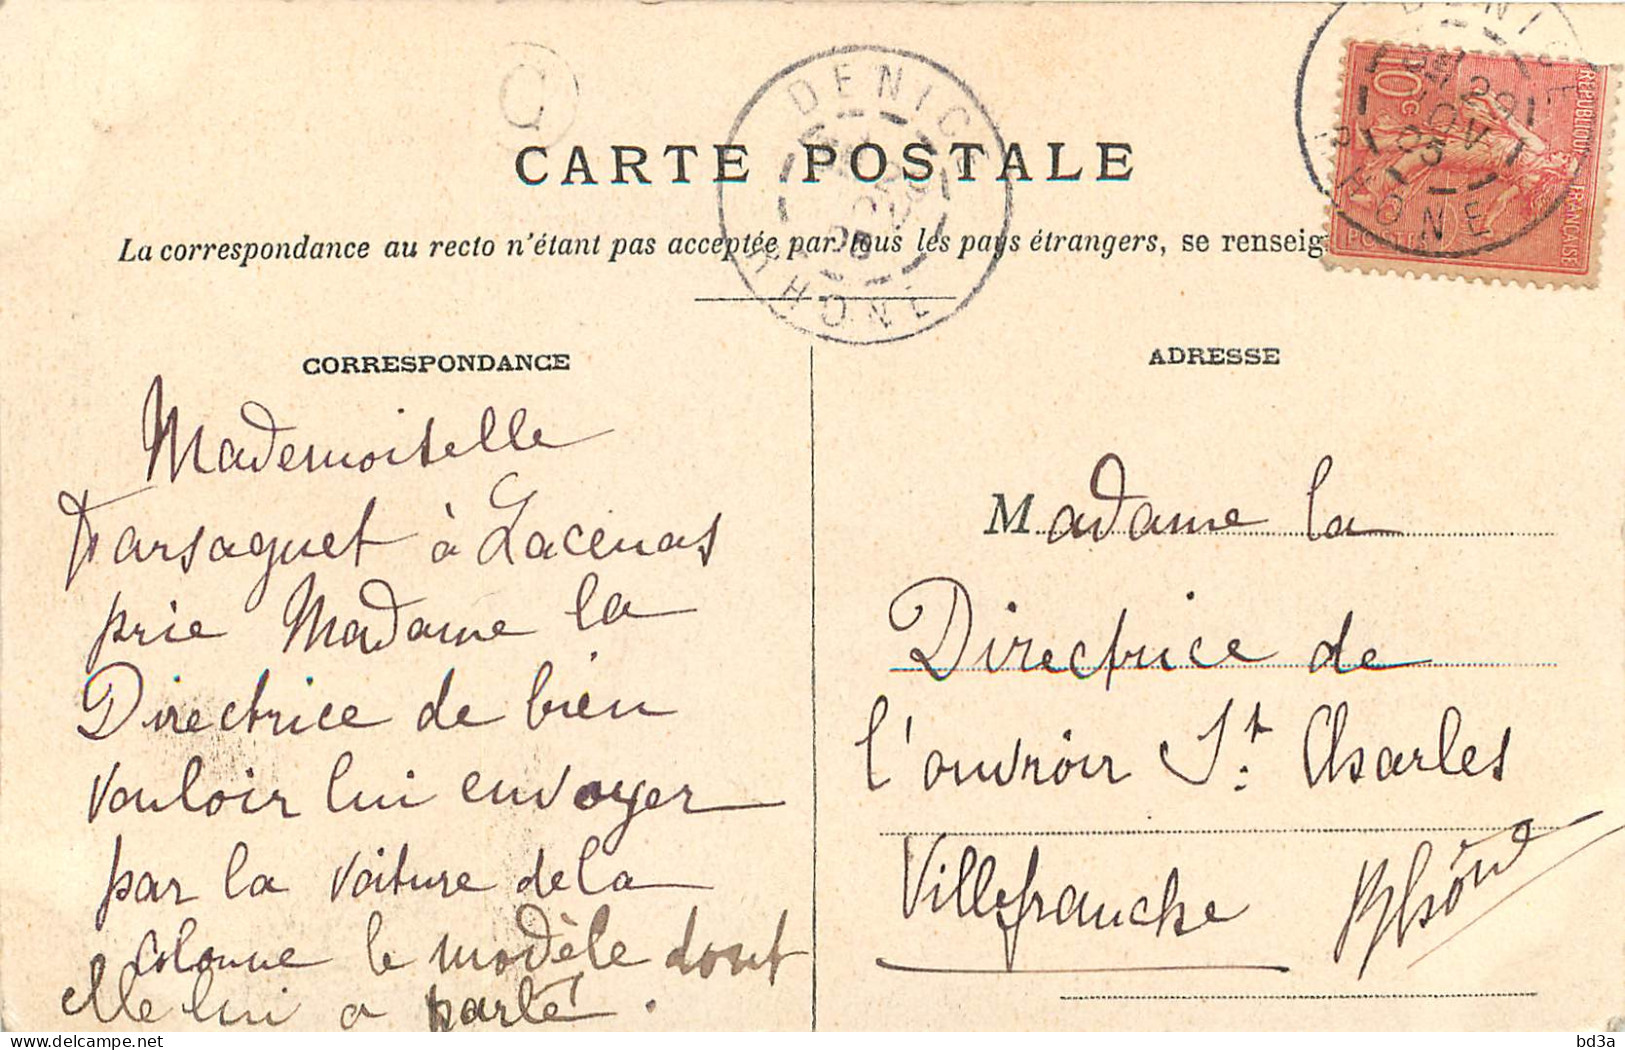 CARTE POSTALE
La correspondance au recto n'étant pas acceptée par tous les pays étrangers, se renseig
CORRESPONDANCE
Mademoiselle
Farsaguet à Lacenas
prie Madame la
Directrice de bien
vouloir lui envoyer
par la voiture de la
colonne le modèle dont
elle lui a parlé.
ADRESSE
Madame la
Directrice de
l'ouvroir St. Charles
Villefranche Rhône
DENICÉ
RHÔNE
10c
RÉPUBLIQUE FRANÇAISE
POSTES
DENICÉ
RHÔNE
G
bd3a